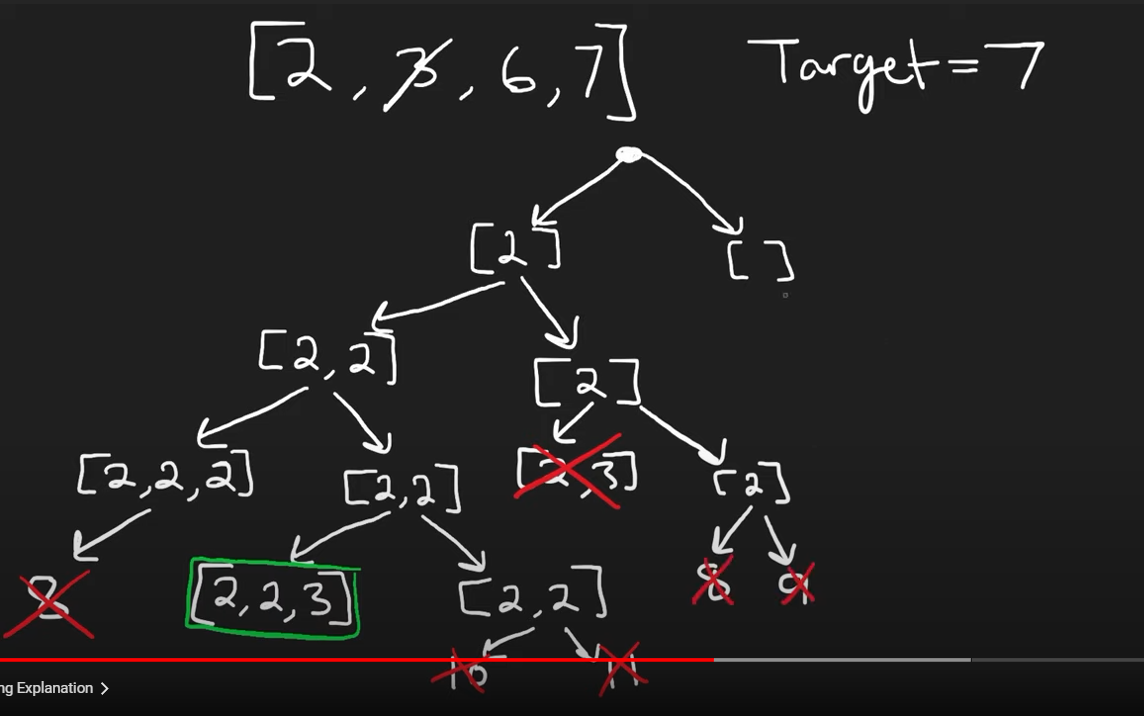 [2, 3, 6, 7] Target=7
[2] []
[2,2] [2]
[2,2,2] [2,2] [2,3] [2]
8 [2,2,3] [2,2] 8 9
10 11
ng Explanation >